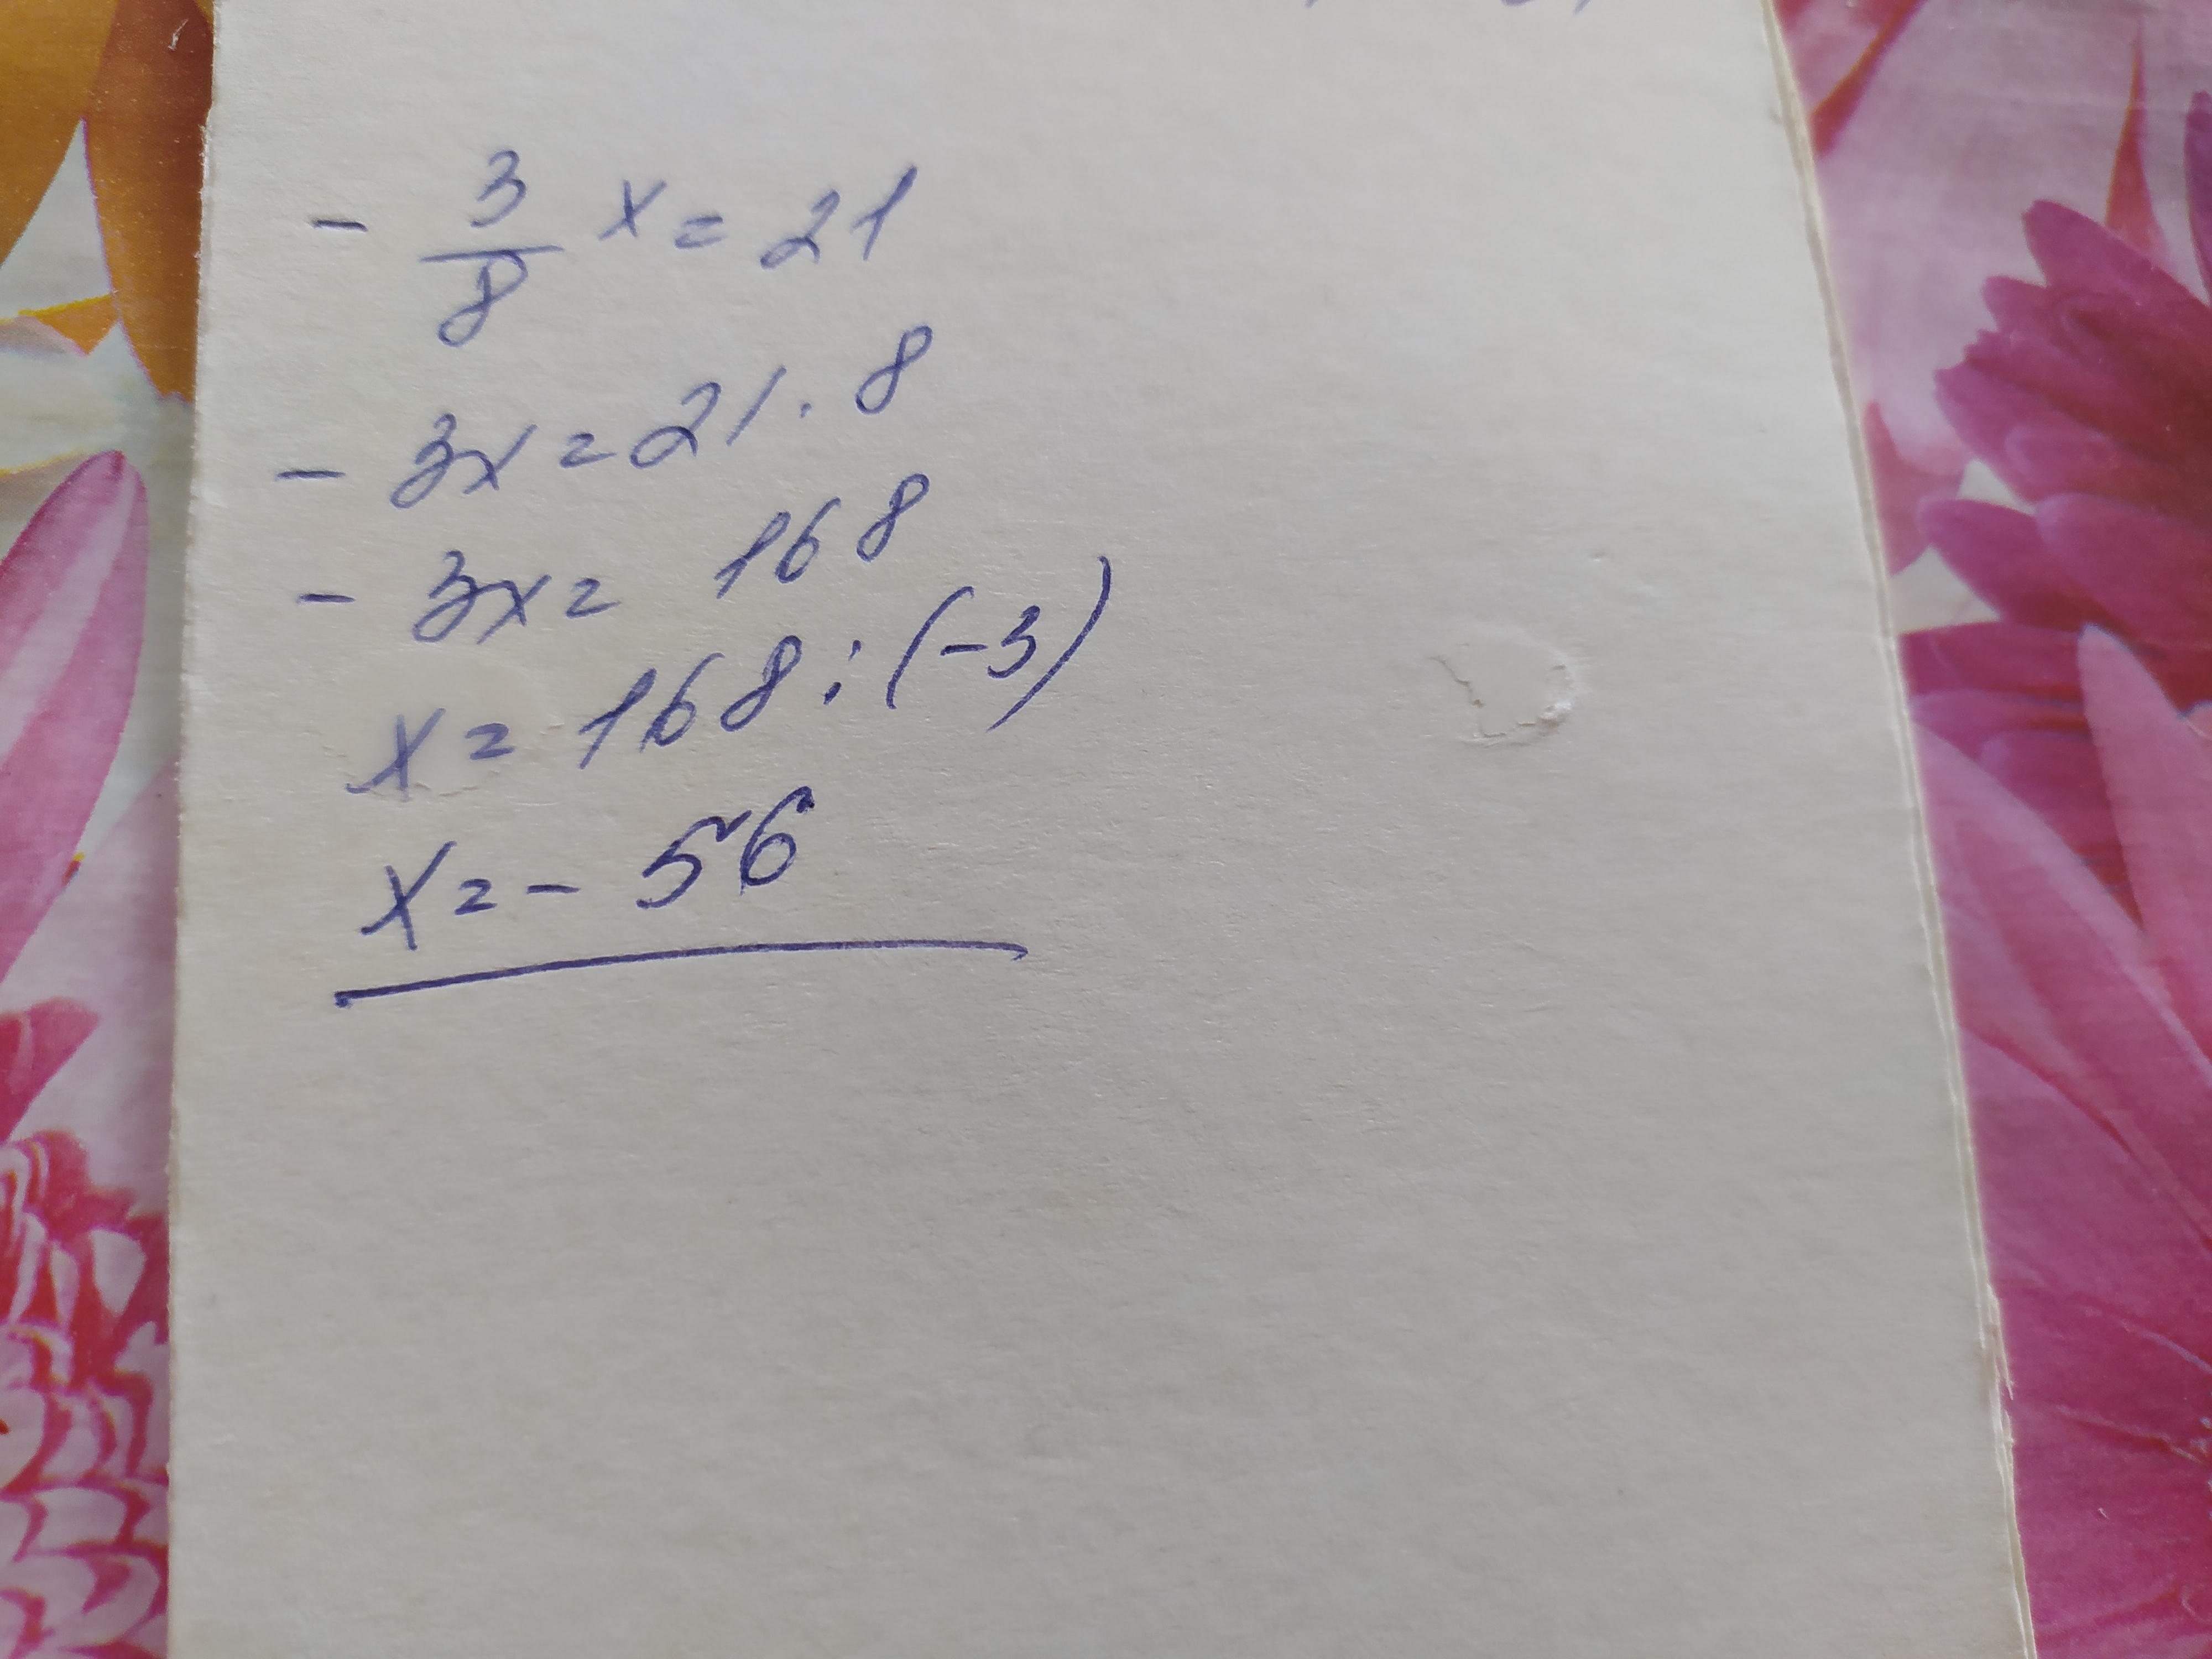 - 3/8 x = 21
- 3x = 21 · 8
- 3x = 168
x = 168 : (-3)
x = - 56